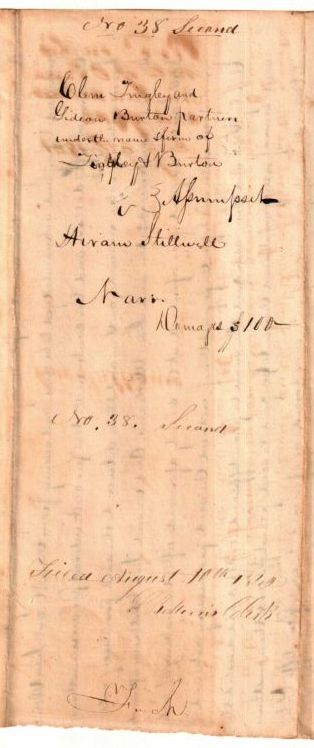 No 38 Second
Clem Tingley and
Gideon Burton partners
under the name & firm of
Tingley & Burton
v } Assumpsit
Hiram Stillwell
Narr.
Damages $100
No. 38. Second
Filed August 10th
Clerk